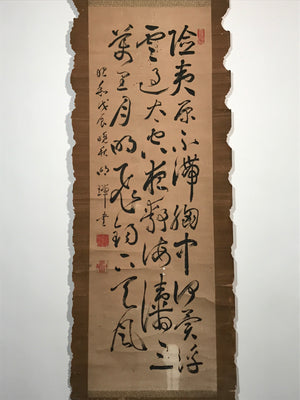 險夷原不滯胸中何異浮
雲過太空夜靜海濤三
萬里月明飛錫下天風
昭和戊辰晚秋 明輝書